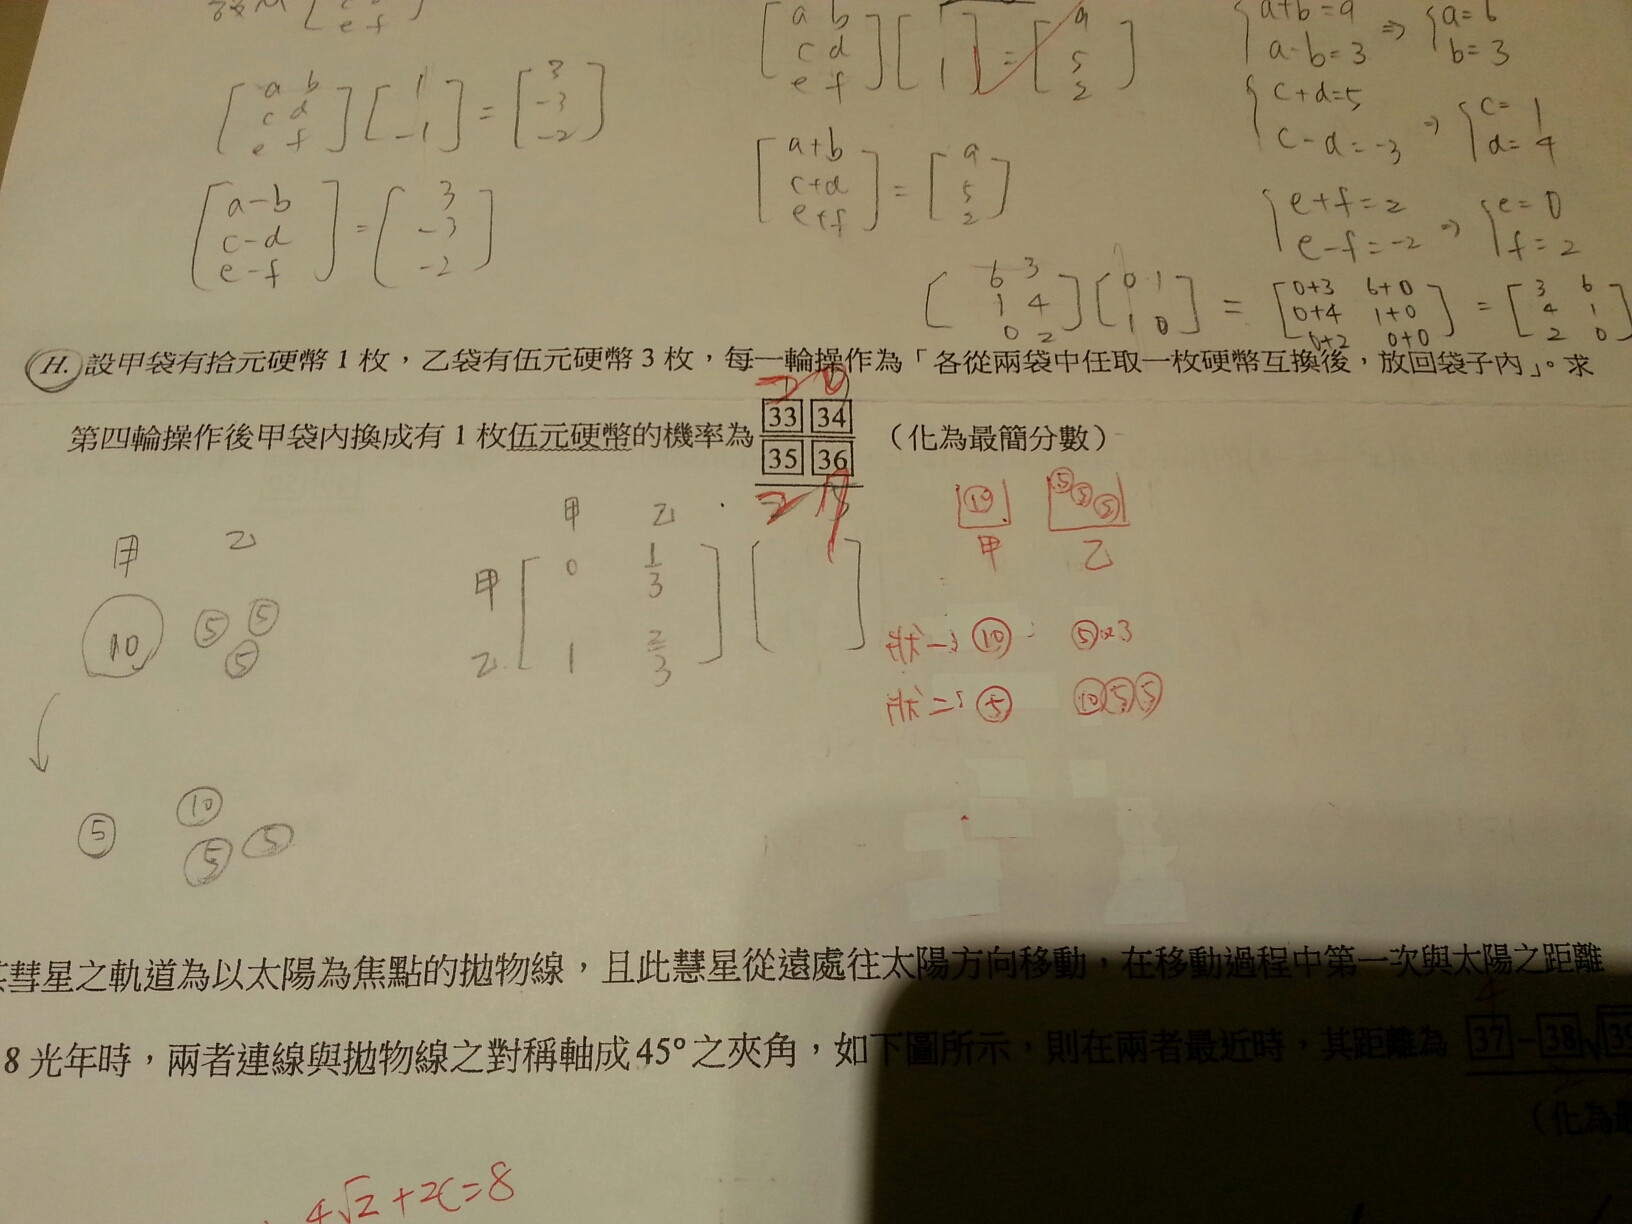 [a b
c d
e f] [1
1] = [9
5
2]
{a+b=9
a-b=3 ⇒ {a=6
b=3
[a b
c d
e f] [1
-1] = [3
-3
-2]
{c+d=5
c-d=-3 ⇒ {c=1
d=4
[a+b
c+d
e+f] = [9
5
2]
[a-b
c-d
e-f] = [3
-3
-2]
{e+f=2
e-f=-2 ⇒ {e=0
f=2
[6 3
1 4
0 2] [0 1
1 0] = [0+3 6+0
0+4 1+0
0+2 0+0] = [3 6
4 1
2 0]
H. 設甲袋有拾元硬幣1枚，乙袋有伍元硬幣3枚，每一輪操作為「各從兩袋中任取一枚硬幣互換後，放回袋子內」。求
2 0
第四輪操作後甲袋內換成有1枚伍元硬幣的機率為 33 34
35 36 （化為最簡分數）
2 7
甲 乙
10 5 5 5
甲 乙
甲 [0 1/3
乙 1 2/3] [ ]
10 5 5 5
甲 乙
狀一: 10 : 5×3
狀二: 5 10 5 5
5 10 5 5
彗星之軌道為以太陽為焦點的拋物線，且此慧星從遠處往太陽方向移動，在移動過程中第一次與太陽之距離
4
8光年時，兩者連線與拋物線之對稱軸成45°之夾角，如下圖所示，則在兩者最近時，其距離為 37 - 38 √
（化為最
4√2+2c=8